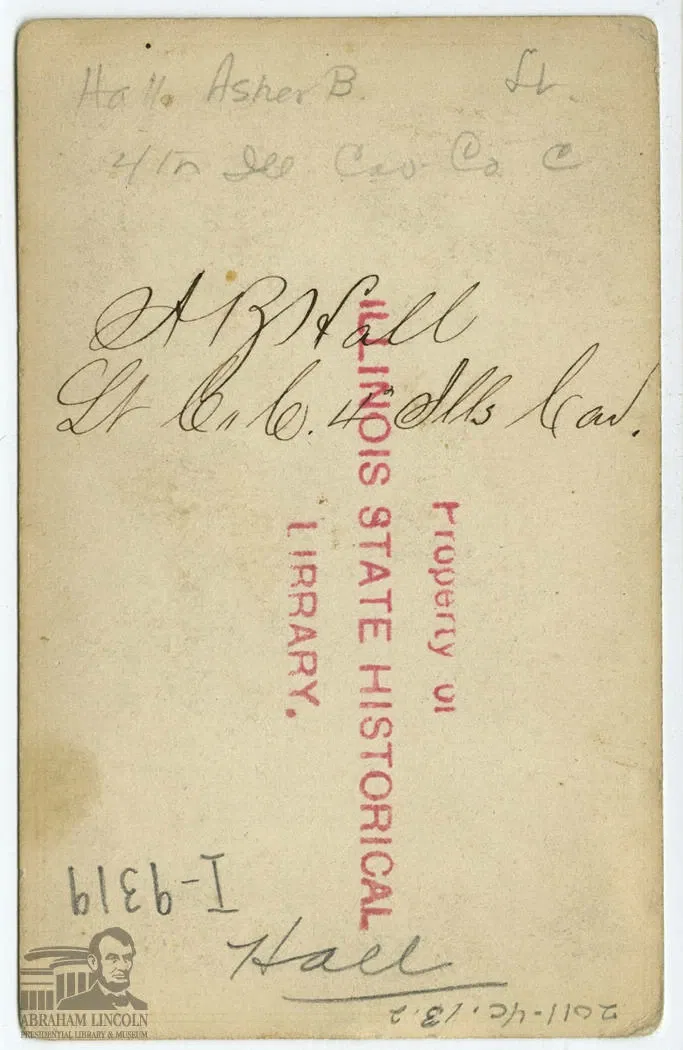 Hall. Asher B. Lt.
4th Ill Cav. Co C
A B Hall
Lt Co C. 4" Ills Cav.
Property of
ILLINOIS STATE HISTORICAL
LIBRARY.
I-9319
Hall
2011-40.13.2
ABRAHAM LINCOLN
PRESIDENTIAL LIBRARY & MUSEUM